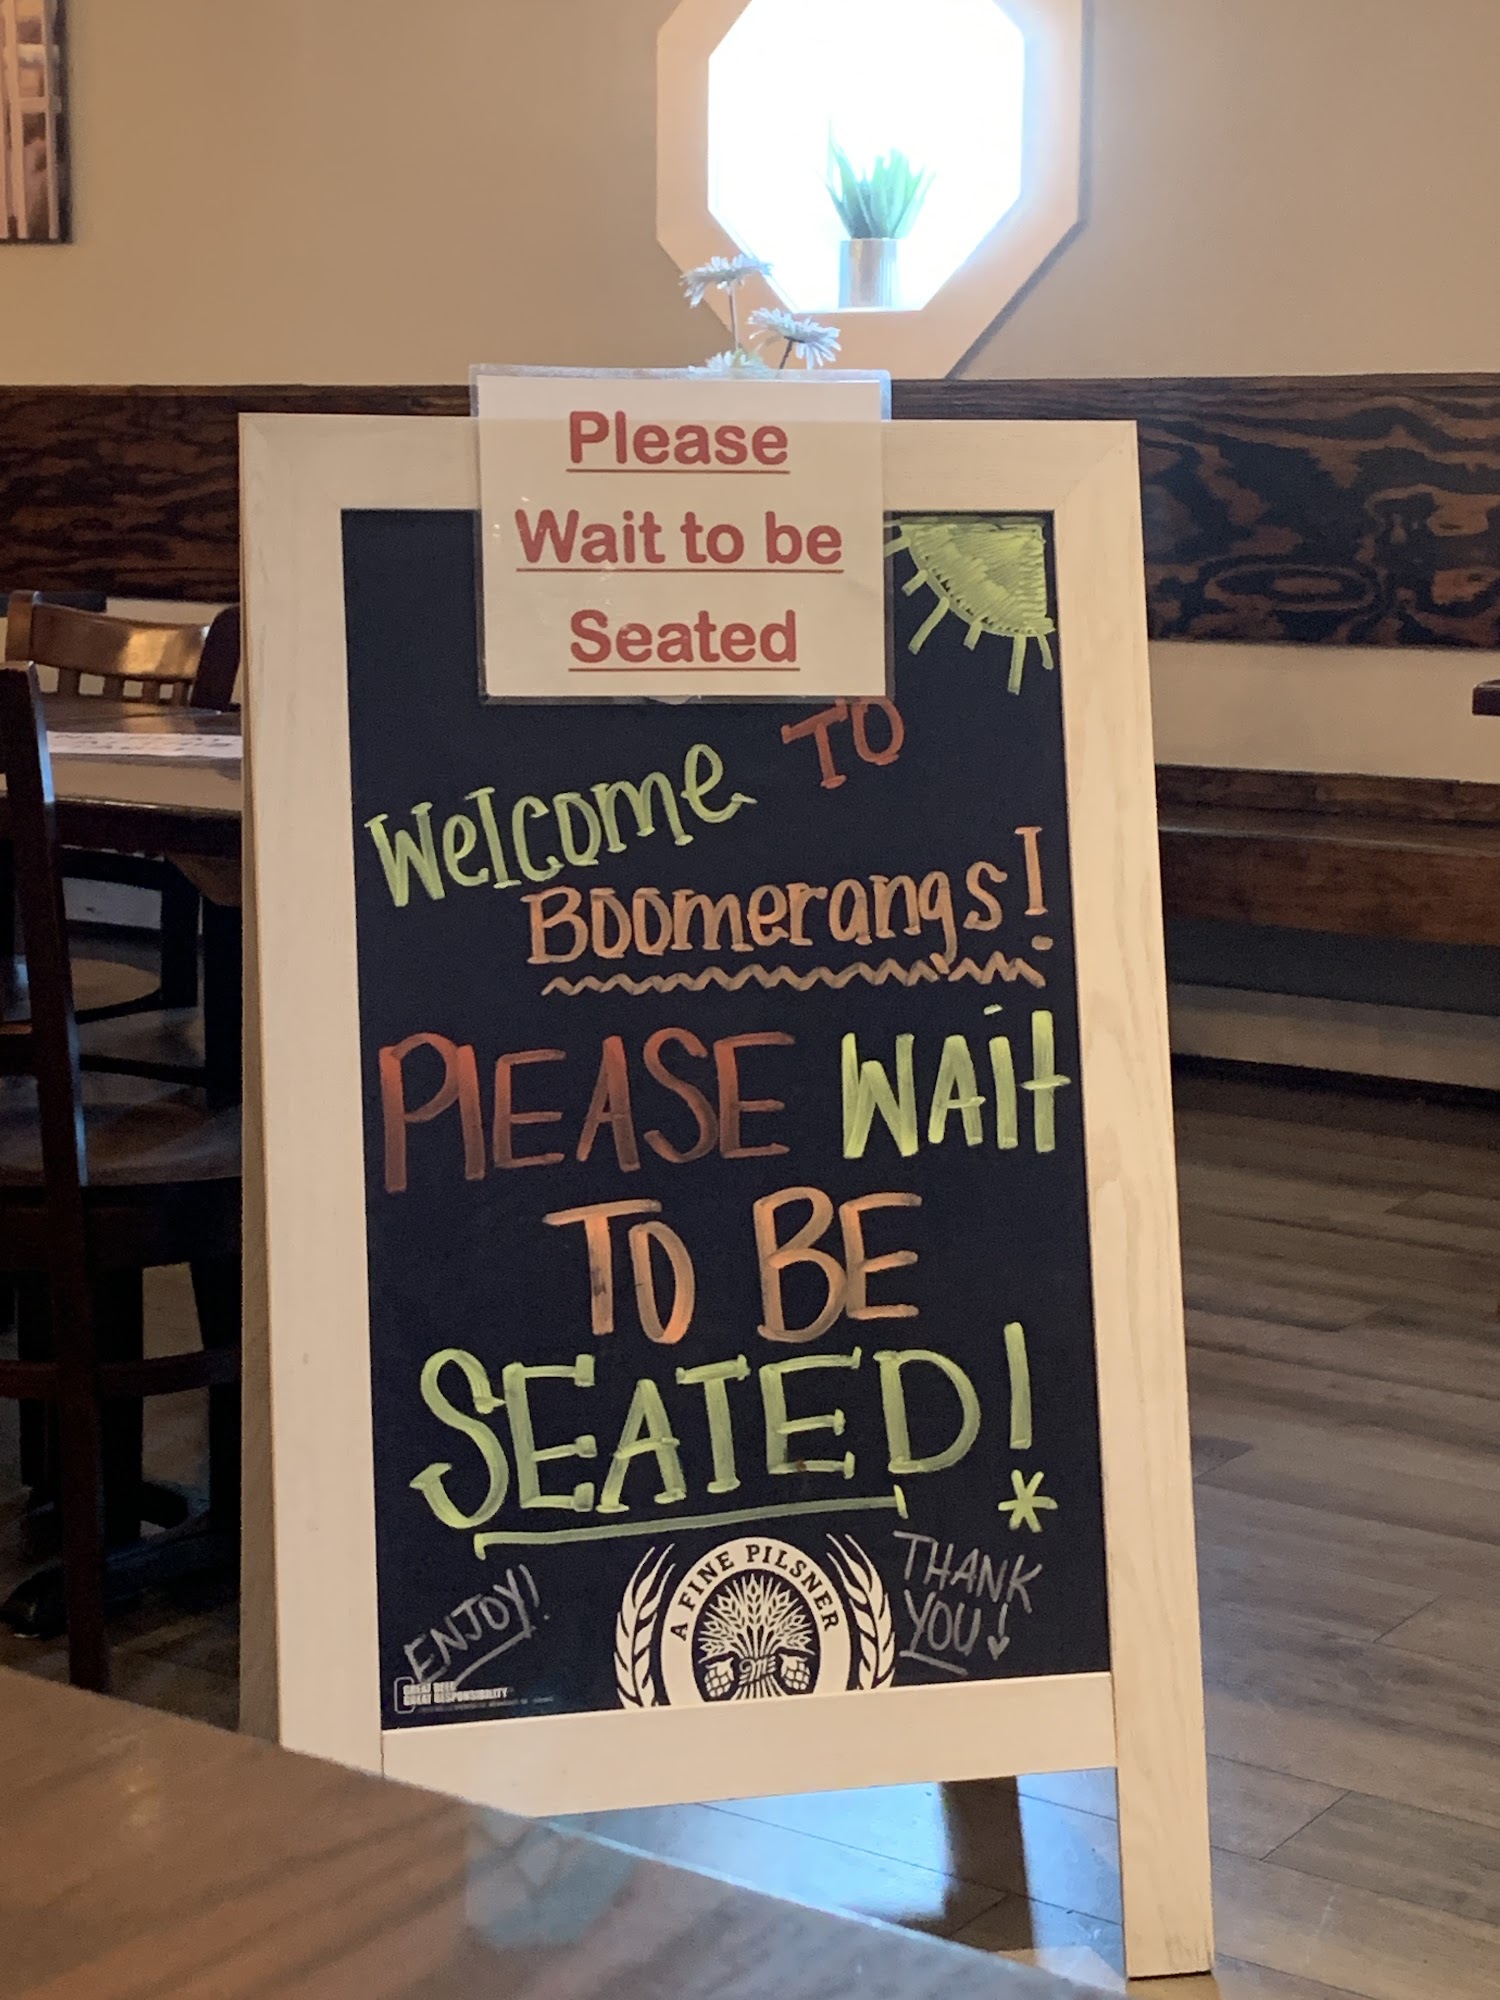 Please
Wait to be
Seated
Welcome TO
Boomerangs!
PLEASE WAit
TO BE
SEATED!
*
ENJOY!
A FINE PILSNER
THANK
YOU!
GREAT BEER
GREAT RESPONSIBILITY